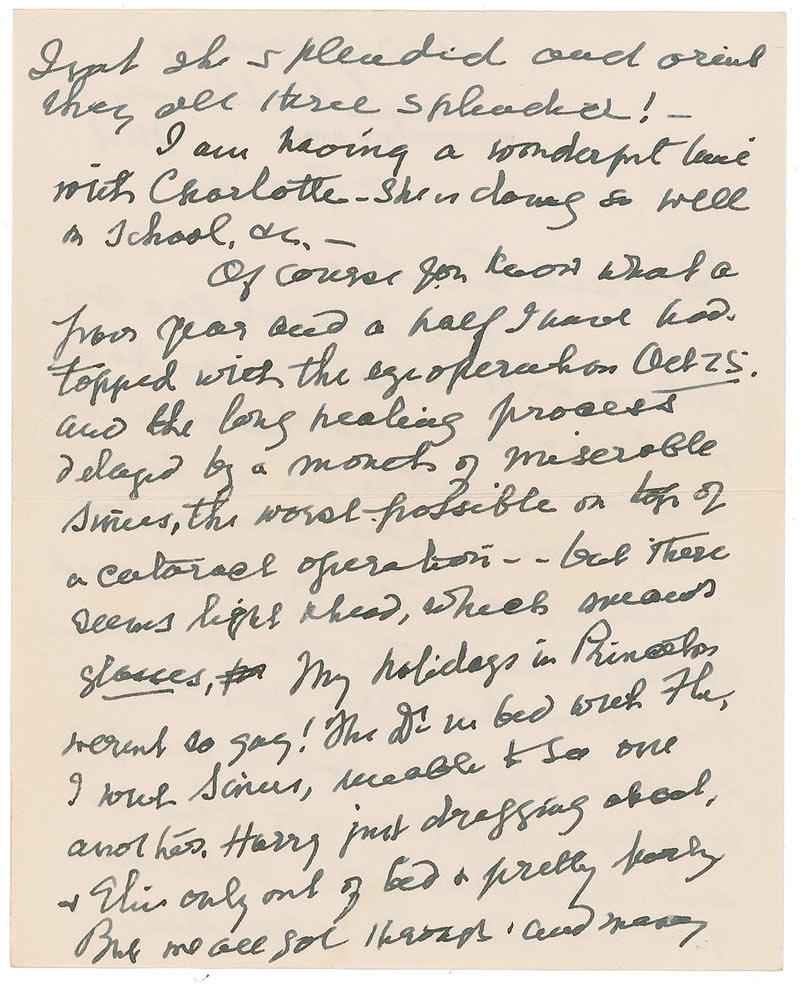 Isnt she splendid and arent
they all three splendid! -
I am having a wonderful time
with Charlotte - She is doing so well
in School, &c. -
Of course you know what a
poor year and a half I have had.
topped with the eye operation Oct 25.
and the long healing process
delayed by a month of miserable
sinus, the worst possible on top of
a cataract operation - - but there
seems light ahead, which means
glasses, My holidays in Princeton
werent so gay! The Dr. in bed with Flu,
I with Sinus, unable to see one
another. Harry just dragging about,
+ only out of bed & pretty
But we all got through and many